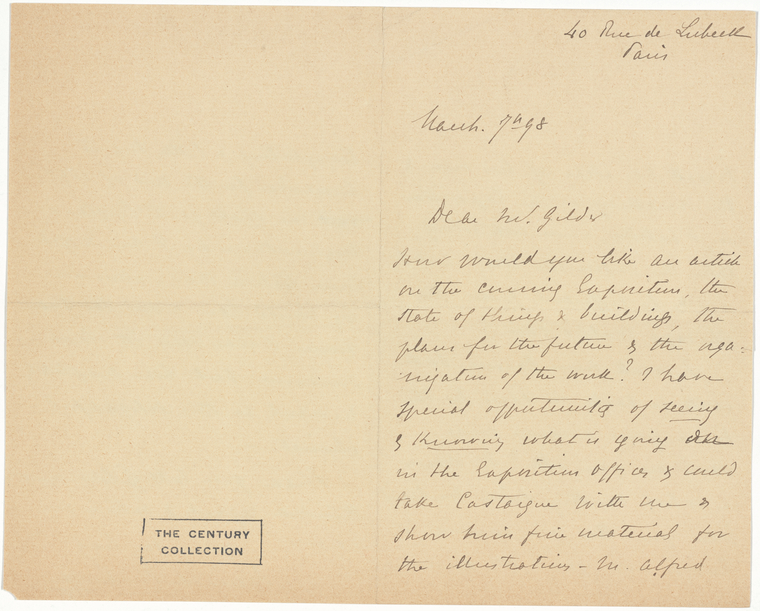 40 Rue de Lubeck
Paris
March. 7th 98
Dear Mr. Gilder
How would you like an article
on the coming Exposition, the
state of things & buildings, the
plans for the future & the orga-
nization of the work? I have
special opportunities of seeing
& knowing what is going on
in the Exposition offices & could
take Castaigne with me &
show him fine material for
the illustrations - M. Alfred
THE CENTURY
COLLECTION